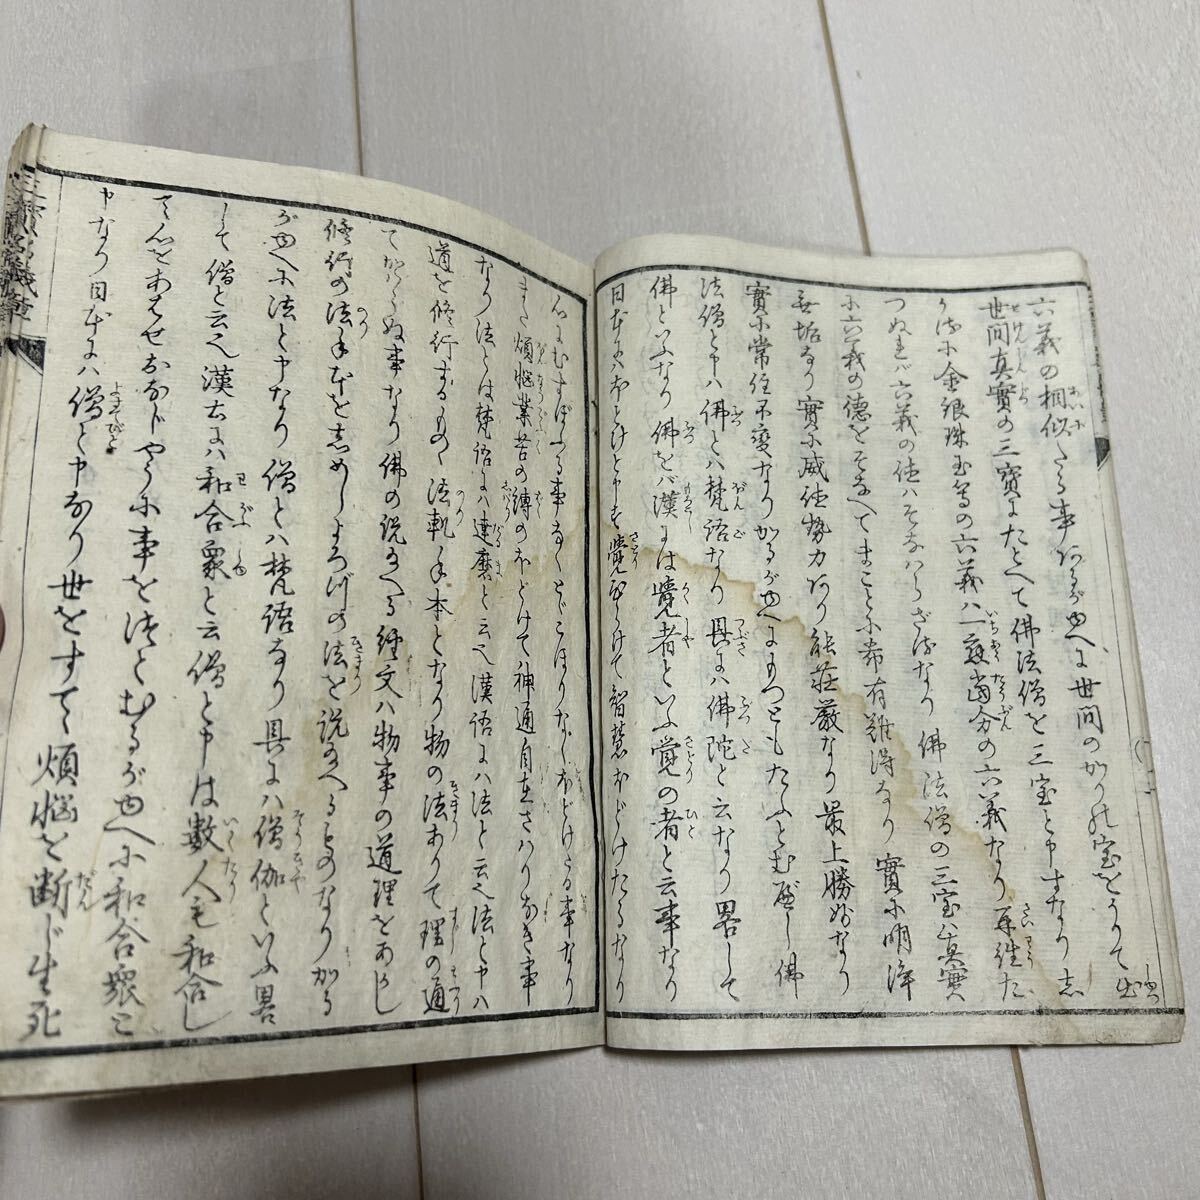 六義の相似たる事あるがゆへに世間のかりの宝をかりて出
世間真實の三寶にたとへて佛法僧を三宝と申すなり志
かるに金銀珠玉等の六義ハ一逕當分の六義なり再往た
つぬれバ六義の徳ハそなハらざるなり佛法僧の三宝ハ真實
に六義の徳をそなへてまことに希有難得なり實に明浄
無垢なり實に威徳勢力あり能荘厳なり最上勝妙なり
實に常住不変なりかるがゆへにもつともたふとむべし佛
法僧と申ハ佛とハ梵語なり具にハ佛陀と云なり畧して
佛といふなり佛をバ漢には覺者といふ覚の者と云事なり
日本にハほとけと申す覺ひらけて智慧ほどけたるなり
心にむすぼふる事なくとどこほりなくほどけたる事なり
また煩悩業苦の縛のほどけて神通自在さハりなき事
なり法とは梵語にハ達磨と云之漢語にハ法と云之法と申ハ
道を修行するものゝ法軌手本となり物の法ありて理の通
てかハらぬ事なり佛の説給へる経文ハ物事の道理をあかし
修行の法手本を志めしよろづの法を説給へるものなりかる
がゆへに法と申なり僧とハ梵語なり具にハ僧伽といふ畧
して僧と云之漢土にハ和合衆と云僧と申は數人も和合し
て心をあハせおなじやうに事をつとむるがゆへに和合衆と
申なり日本にハ僧と申なり世をすてゝ煩悩を断じ生死